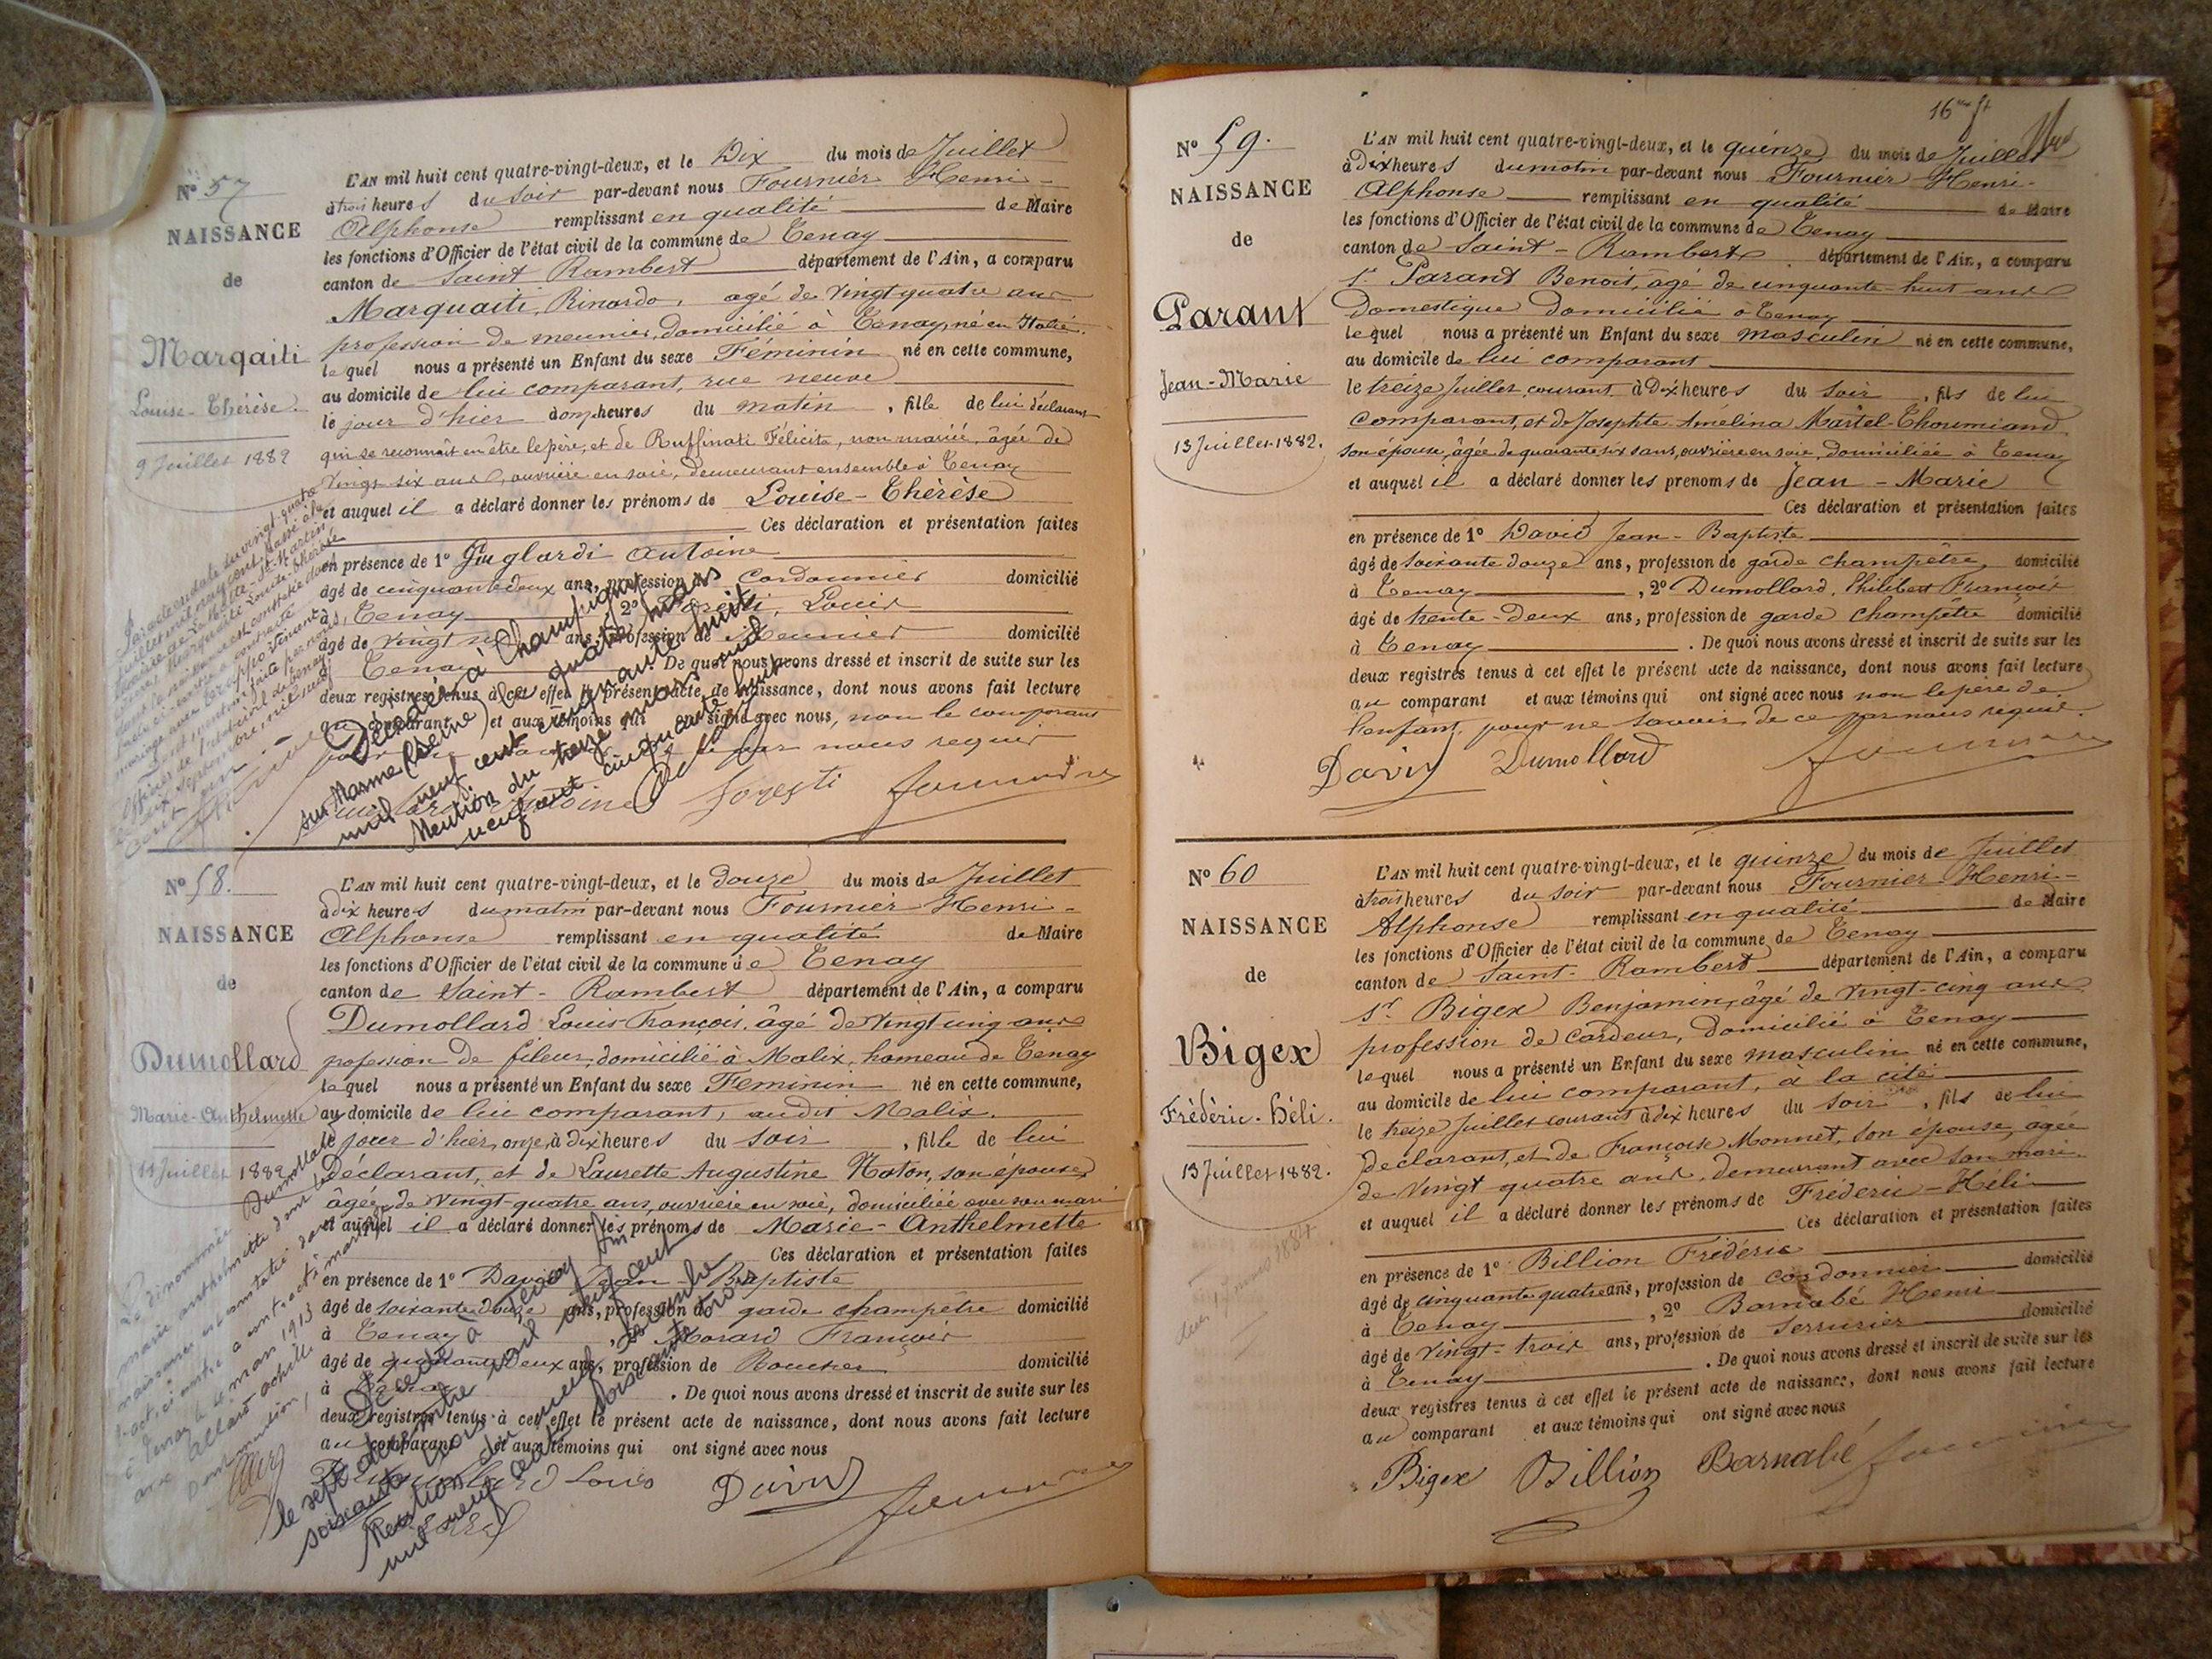 N° 57
NAISSANCE
de
Marqaiti
Louise-Thérèse
9 Juillet 1882
L'AN mil huit cent quatre-vingt-deux, et le Dix du mois de Juillet
à trois heures du soir par-devant nous Fournier Henri-
Alphonse remplissant en qualité de Maire
les fonctions d'Officier de l'état civil de la commune de Tenay
canton de Saint Rambert département de l'Ain, a comparu
Marquaiti, Rinardo, agé de vingt quatre ans
profession de meunier, domicilié à Tenay, né en Italie.
lequel nous a présenté un Enfant du sexe Féminin né en cette commune,
au domicile de lui comparant, rue neuve
le jour d'hier heures du matin, fille de lui déclarant
qui se reconnait en être le père, et de Ruffinati Félicité, non mariée, âgée de
vingt six ans, ouvrière en soie, demeurant ensemble à Tenay
et auquel il a déclaré donner les prénoms de Louise-Thérèse
Ces déclaration et présentation faites
en présence de 1° Guglardi Antoine
âgé de cinquante deux ans, profession de cordonnier domicilié
à Tenay 2° Louis
âgé de vingt ans, profession de Meunier domicilié
Tenay De quoi nous avons dressé et inscrit de suite sur les
deux registres tenus à cet effet le présent acte de naissance, dont nous avons fait lecture
au comparant et aux témoins qui ont signé avec nous, non le comparant
par nous requis
Décédé à Champigny
sur Marne (Seine) le quatre mars
mil neuf cent cinquante huit
Mention du treize mars mil
neuf cent cinquante huit
N° 58.
NAISSANCE
de
Dumollard
Marie-Anthelmette
11 Juillet 1882
L'AN mil huit cent quatre-vingt-deux, et le douze du mois de Juillet
à dix heures du matin par-devant nous Fournier Henri-
Alphonse remplissant en qualité de Maire
les fonctions d'Officier de l'état civil de la commune de Tenay
canton de Saint-Rambert département de l'Ain, a comparu
Dumollard Louis François, âgé de vingt cinq ans
profession de fileur, domicilié à Malix, hameau de Tenay
lequel nous a présenté un Enfant du sexe Féminin né en cette commune,
au domicile de lui comparant, audit Malix.
le jour d'hier, onze, à dix heures du soir, fille de lui
Déclarant, et de Laurette Augustine Noton, son épouse
âgée de vingt-quatre ans, ouvrière en soie, domiciliée avec son mari
et auquel il a déclaré donner les prénoms de Marie-Anthelmette
Ces déclaration et présentation faites
en présence de 1° David Jean-Baptiste
âgé de soixante douze ans, profession de garde champêtre domicilié
à Tenay, 2° Morard François
âgé de quarante deux ans, profession de Boucher domicilié
à Tenay. De quoi nous avons dressé et inscrit de suite sur les
deux registres tenus à cet effet le présent acte de naissance, dont nous avons fait lecture
au comparant et aux témoins qui ont signé avec nous
Dumollard Louis David
Décédée à Tenay Ain
le sept décembre mil neuf cent
soixante trois
Mention du neuf décembre
mil neuf cent soixante trois
La dénommée Dumollard
marie anthelmette dont la
naissance est constatée dans
l'acte ci contre a contracté mariage
à Tenay le mars 1913
avec Allard achille
Dont mention,
16me ft
N° 59.
NAISSANCE
de
Parant
Jean-Marie
13 Juillet 1882.
L'AN mil huit cent quatre-vingt-deux, et le quinze du mois de Juillet
à Dix heures du matin par-devant nous Fournier Henri-
Alphonse remplissant en qualité de Maire
les fonctions d'Officier de l'état civil de la commune de Tenay
canton de Saint-Rambert département de l'Ain, a comparu
Sr Parant Benoit, âgé de cinquante-huit ans
domestique domicilié à Tenay
lequel nous a présenté un Enfant du sexe masculin né en cette commune,
au domicile de lui comparant
le treize Juillet courant à Dix heures du soir, fils de lui
comparant, et de Josephte Amélina Martel-Thoumiand
son épouse, âgée de quarante six ans, ouvrière en soie, domiciliée à Tenay
et auquel il a déclaré donner les prenoms de Jean-Marie
Ces déclaration et présentation faites
en présence de 1° David Jean-Baptiste
âgé de soixante douze ans, profession de garde champêtre, domicilié
à Tenay, 2° Dumollard, Philibert François
âgé de trente-deux ans, profession de garde champêtre domicilié
à Tenay. De quoi nous avons dressé et inscrit de suite sur les
deux registres tenus à cet effet le présent acte de naissance, dont nous avons fait lecture
au comparant et aux témoins qui ont signé avec nous non le père de
l'enfant, pour ne savoir de ce par nous requis.
David Dumollard
N° 60
NAISSANCE
de
Bigex
Frédéric-Héli.
13 Juillet 1882.
L'AN mil huit cent quatre-vingt-deux, et le quinze du mois de Juillet
à trois heures du soir par-devant nous Fournier Henri-
Alphonse remplissant en qualité de Maire
les fonctions d'Officier de l'état civil de la commune de Tenay
canton de Saint-Rambert département de l'Ain, a comparu
Sr Bigex Benjamin, âgé de vingt-cinq ans
profession de cardeur, domicilié à Tenay
lequel nous a présenté un Enfant du sexe masculin né en cette commune,
au domicile de lui comparant, à la cité
le treize Juillet courant à dix heures du soir, fils de lui
déclarant, et de Françoise Monnet, son épouse, agée
de vingt quatre ans, demeurant avec son mari
et auquel il a déclaré donner les prénoms de Fréderic-Héli
Ces déclaration et présentation faites
en présence de 1° Billion Frédéric
âgé de cinquante quatre ans, profession de cordonnier domicilié
à Tenay, 2° Barnabé Henri
âgé de vingt-trois ans, profession de serrurier domicilié
à Tenay. De quoi nous avons dressé et inscrit de suite sur les
deux registres tenus à cet effet le présent acte de naissance, dont nous avons fait lecture
au comparant et aux témoins qui ont signé avec nous
Bigex Billion Barnabé